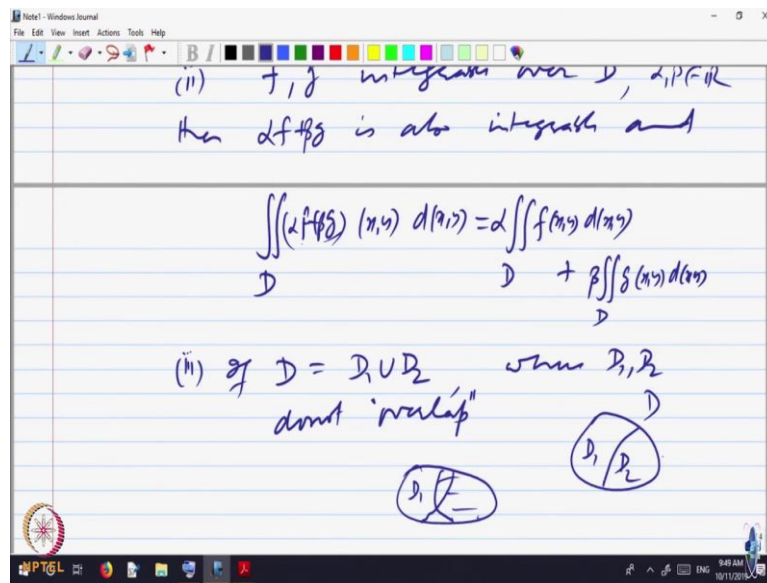 Note1 - Windows Journal
File Edit View Insert Actions Tools Help
B I
(ii) f, g integrable over D, α, β ∈ ℝ
then αf+βg is also integrable and
∬(αf+βg) (x,y) d(x,y) = α∬f(x,y) d(x,y)
D D + β∬g(x,y) d(x,y)
D
(iii) If D = D₁ ∪ D₂ where D₁, D₂
donot "overlap"
D
D₁ D₂
D₁
NPTEL
ENG
9:49 AM